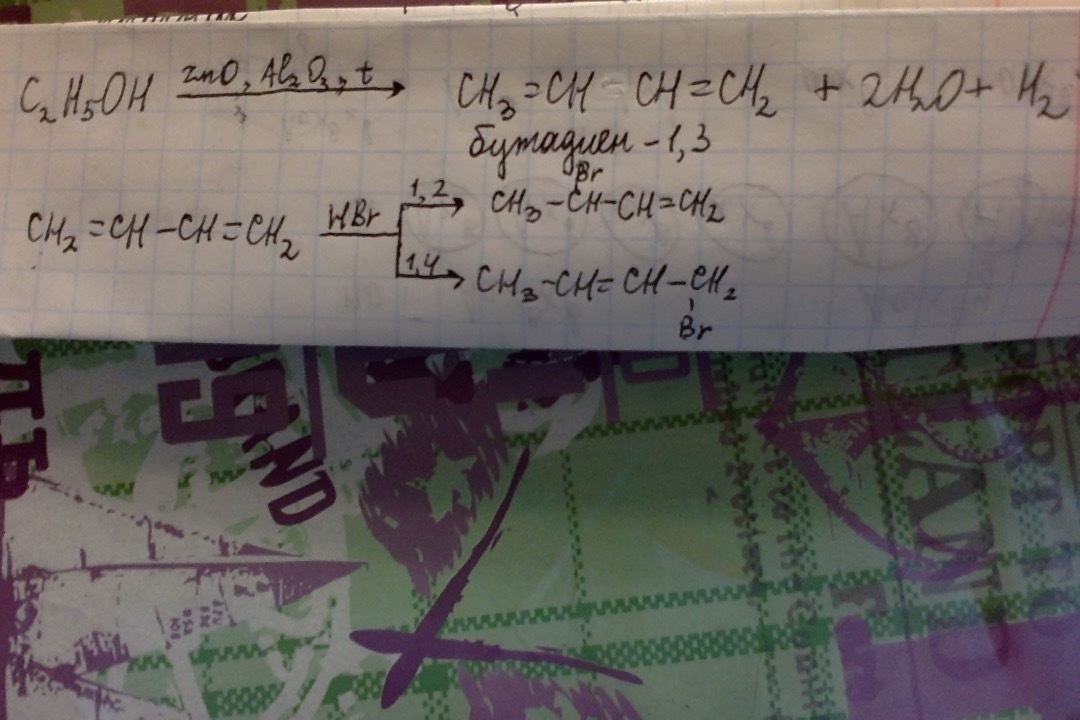 C₂H₅OH ZnO, Al₂O₃, t → CH₃=CH CH=CH₂ + 2H₂O + H₂
бутадиен -1,3
CH₂=CH-CH=CH₂ HBr
1,2 → CH₃-CH-CH=CH₂
Br
1,4 → CH₃-CH=CH-CH₂
Br
AND